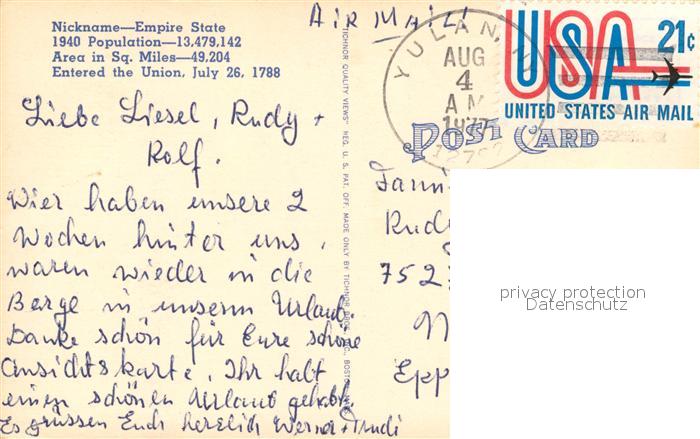 Nickname—Empire State
1940 Population—13,479,142
Area in Sq. Miles—49,204
Entered the Union, July 26, 1788
AIR MAIL
YULAN, N
AUG
4
AM
1977
USA 21c
UNITED STATES AIR MAIL
POST CARD
TICHNOR QUALITY VIEWS" REG. U. S. PAT. OFF. MADE ONLY BY TICHNOR BROS., INC., BOSTON
Liebe Liesel, Rudy +
Rolf.
Wier haben unsere 2
Wochen hinter uns,
waren wieder in die
Berge in unserm Urlaub.
Danke schön für Eure schöne
Ansichtskarte, Ihr habt
einen schönen Urlaub gehabt.
Es grüssen Euch herzlich Werner + Trudi
Fami
Rud
752
Epp
privacy protection
Datenschutz